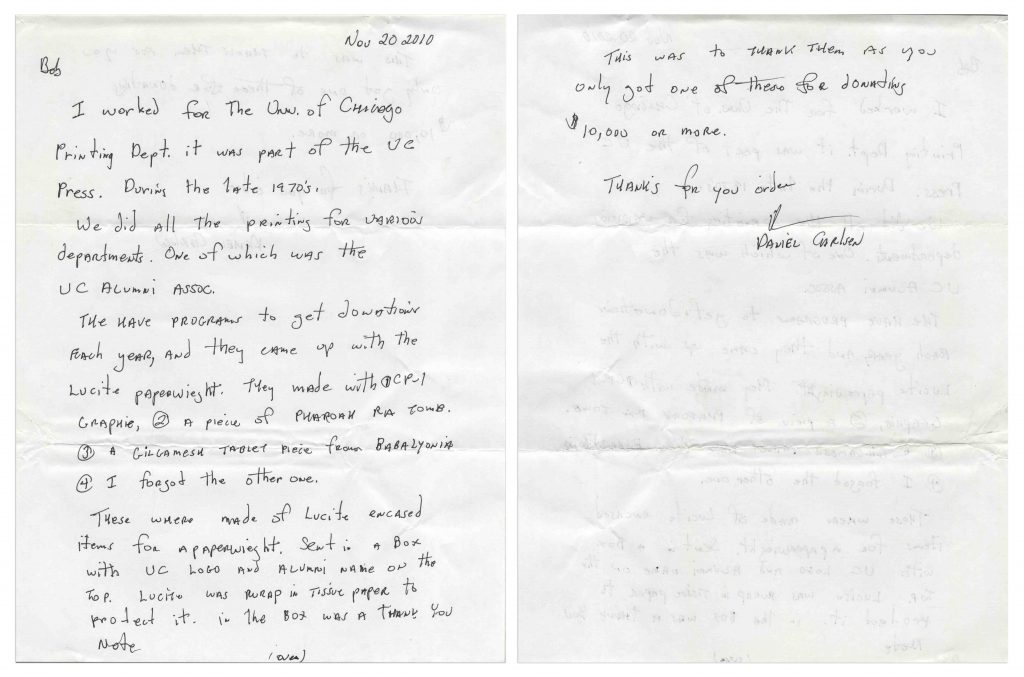 Nov 20 2010
Bob
I worked for The Univ. of Chicago
Printing Dept. it was part of the UC
Press. During the late 1970's.
We did all the printing for various
departments. One of which was the
UC Alumni Assoc.
The have programs to get donations
Each year, and they came up with the
Lucite paperwieght. They made with ① CP-1
Graphie, ② a piece of Pharoah Ra tomb.
③ A Gilgamesh Tablet piece from Babalyonia
④ I forgot the other one.
These where made of Lucite encased
items for a paperwieght. Sent in a Box
with UC Logo and Alumni name on the
Top. Lucite was rurap in Tissue paper to
protect it. in the Box was a Thank You
Note
(over)
This was to Thank Them as you
only got one of these for donations
$10,000 or more.
Thanks for you order
Daniel Carlsen